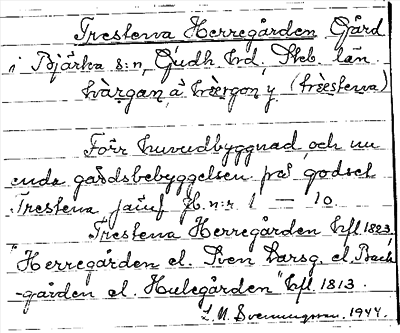 Trestena Herregården Gård
i Bjärka s:n, Gudh. hd, Skb. län
hàrgan, å hàrgon y (trèestena)
Förr huvudbyggnad, och nu
enda gårdsbebyggelsen på godset
Trestena jämf Jb. n:r 1 — 10.
Trestena Herregården hfl. 1823,
"Herregården el. Sven Larsg. el. Back
-gården el. Hulegården" hfl. 1813.
1944.